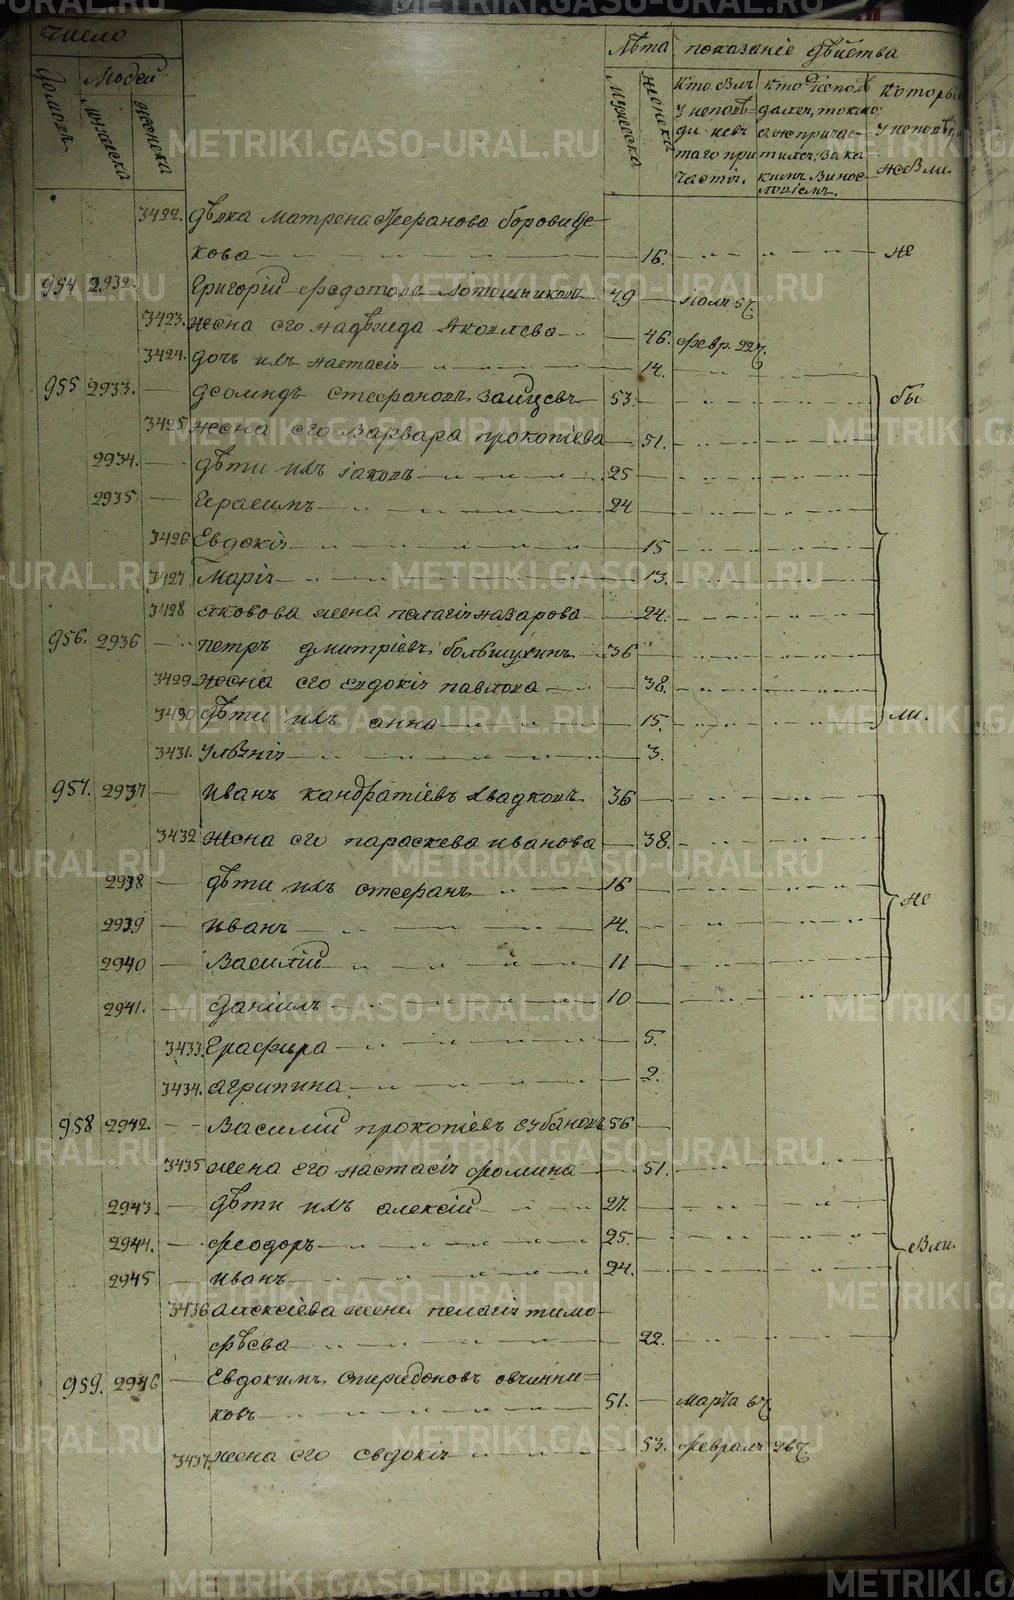 Число
Людей
Лѣта показаніе дѣйства
Домовъ.
Мужеска
женска
Мужеска
женска
Кто былъ у исповѣди и св. таго причастія.
Кто исповѣдался, токмо, а не причастился, и за какимъ винословіемъ.
Которые у исповѣди не были.
3422. дѣвка Матрена Стефанова боровиде=
кова 16. не
954 2932. Григорій Федотовъ Лотошниковъ 49 іюля 5ч.
3423. жена его надѣжда Яковлева 46. февр. 22ч.
3424. дочь ихъ настасія 14.
955 2933. деомидъ Стефановъ Зайцевъ 53. бы
3425 жена его Варвара прокопіева 51.
2934. дѣти ихъ іаковъ 25
2935 Герасимъ 24
3426 Евдокія 15
3427 Марія 13.
3428 яковова жена пелагія назарова 24.
956. 2936 петръ дмитріевъ большухинъ 36
3429 жена его евдокія павлова 38.
3430 дѣти ихъ анна 15. ли.
3431. Ульянія 3.
957. 2937 иванъ кандратіевъ Квадковъ 36
3432 жена его параскева иванова 38.
2938 дѣти ихъ стефанъ 16 не
2939 иванъ 14.
2940 Василій 11
2941. даніилъ 10
3433. Графира 5.
3434. агрипина 2.
958 2942. Василій прокопіевъ Губановъ 56
3435 жена его настасія фомина 51.
2943. дѣти ихъ алексій 27.
2944. феодоръ 25. были.
2945 иванъ 24.
3436 алексіева жена пелагія тимо
фѣева 22.
959. 2946 Евдокимъ спиридоновъ овчинни=
ковъ 51. марта 6ч.
3437. жена его евдокія 53. февраля 26ч.
METRIKI.GASO-URAL.RU